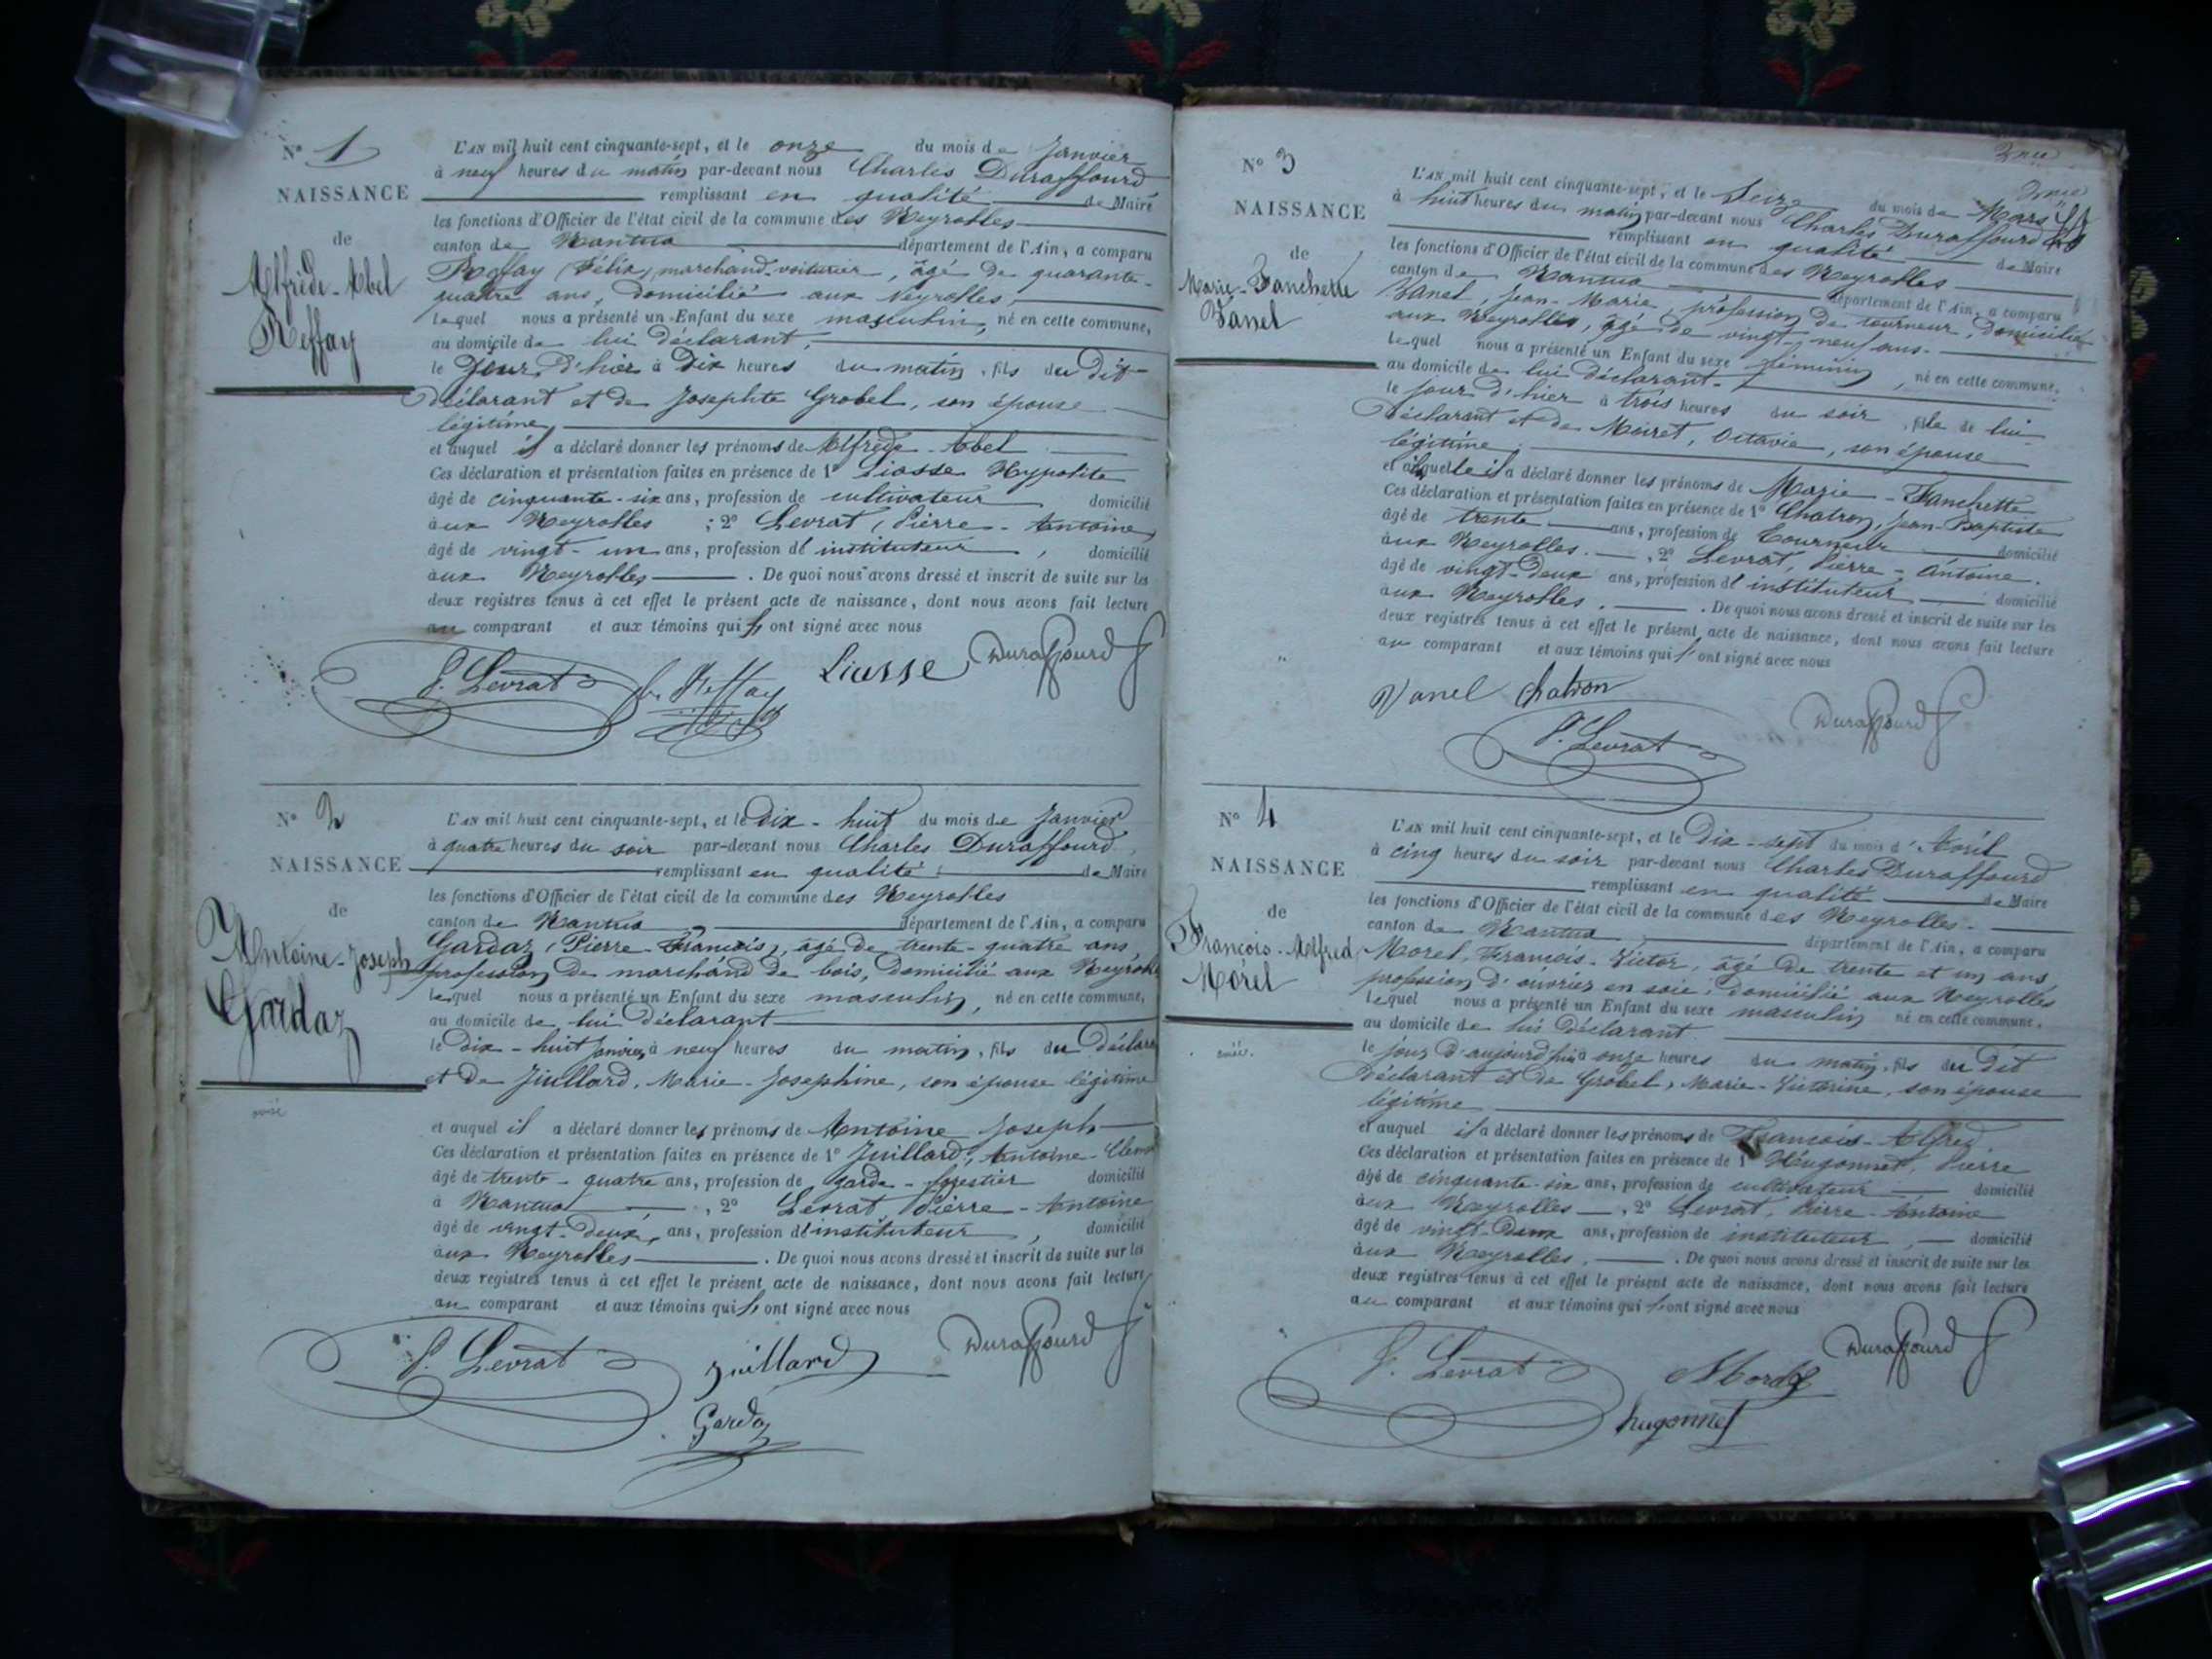 N° 1
NAISSANCE
de
Alfrède-Abel
Reffay
L'AN mil huit cent cinquante-sept, et le onze du mois de Janvier
à neuf heures du matin par-devant nous Charles Duraffourd
remplissant en qualité de Maire
les fonctions d'Officier de l'état civil de la commune des Neyrolles
canton de Nantua département de l'Ain, a comparu
Reffay (Félix) marchand-voiturier, âgé de quarante-
quatre ans, domicilié aux Neyrolles,
lequel nous a présenté un Enfant du sexe masculin, né en cette commune,
au domicile de lui déclarant,
le jour d'hier à dix heures du matin, fils du dit
déclarant et de Josephte Grobel, son épouse
légitime,
et auquel il a déclaré donner les prénoms de Alfrède-Abel
Ces déclaration et présentation faites en présence de 1° Liasse Hyppolite
âgé de cinquante-six ans, profession de cultivateur domicilié
aux Neyrolles ; 2° Levrat (Pierre-Antoine)
âgé de vingt-un ans, profession d'instituteur, domicilié
aux Neyrolles. De quoi nous avons dressé et inscrit de suite sur les
deux registres tenus à cet effet le présent acte de naissance, dont nous avons fait lecture
au comparant et aux témoins qui ont signé avec nous
P. Levrat f. Reffay Liasse Duraffourd
N° 2
NAISSANCE
de
Antoine-Joseph
Gardaz
L'AN mil huit cent cinquante-sept, et le dix-huit du mois de Janvier
à quatre heures du soir par-devant nous Charles Duraffourd,
remplissant en qualité de Maire
les fonctions d'Officier de l'état civil de la commune des Neyrolles
canton de Nantua département de l'Ain, a comparu
Gardaz (Pierre-François), âgé de trente-quatre ans,
profession de marchand de bois, domicilié aux Neyrolles
lequel nous a présenté un Enfant du sexe masculin, né en cette commune,
au domicile de lui déclarant
le dix-huit janvier à neuf heures du matin, fils du déclara
et de Juillard, Marie-Josephine, son épouse légitime
et auquel il a déclaré donner les prénoms de Antoine Joseph
Ces déclaration et présentation faites en présence de 1° Juillard, Antoine-Clem
âgé de trente-quatre ans, profession de garde-forestier domicilié
à Nantua, 2° Levrat, Pierre-Antoine
âgé de vingt-deux, ans, profession d'instituteur, domicilié
aux Neyrolles. De quoi nous avons dressé et inscrit de suite sur les
deux registres tenus à cet effet le présent acte de naissance, dont nous avons fait lecture
au comparant et aux témoins qui ont signé avec nous
P. Levrat Juillard Duraffourd
Gardaz
N° 3
NAISSANCE
de
Marie-Fanchette
Vanel
L'AN mil huit cent cinquante-sept, et le seize du mois de Mars
à huit heures du matin par-devant nous Charles Duraffourd
remplissant en qualité de Maire
les fonctions d'Officier de l'état civil de la commune des Neyrolles
canton de Nantua département de l'Ain, a comparu
Vanel, Jean-Marie, profession de tourneur, domicilié
aux Neyrolles, âgé de vingt-neuf ans.
lequel nous a présenté un Enfant du sexe féminin, né en cette commune,
au domicile de lui déclarant.
le jour d'hier à trois heures du soir, fille de lui
déclarant et de Moiret, Octavie, son épouse
légitime
et à laquelle il a déclaré donner les prénoms de Marie-Fanchette
Ces déclaration et présentation faites en présence de 1° Chatron, Jean-Baptiste
âgé de trente ans, profession de Tourneur domicilié
aux Neyrolles., 2° Levrat, Pierre-Antoine.
âgé de vingt-deux ans, profession d'instituteur domicilié
aux Neyrolles. De quoi nous avons dressé et inscrit de suite sur les
deux registres tenus à cet effet le présent acte de naissance, dont nous avons fait lecture
au comparant et aux témoins qui ont signé avec nous
Vanel Chatron
P. Levrat Duraffourd
N° 4
NAISSANCE
de
François-Alfred
Morel
L'AN mil huit cent cinquante-sept, et le dix-sept du mois d'Avril
à cinq heures du soir par-devant nous Charles Duraffourd
remplissant en qualité de Maire
les fonctions d'Officier de l'état civil de la commune des Neyrolles.
canton de Nantua département de l'Ain, a comparu
Morel, François-Victor, âgé de trente et un ans
profession d'ouvrier en soie, domicilié aux Neyrolles
lequel nous a présenté un Enfant du sexe masculin né en cette commune,
au domicile de lui déclarant.
le jour d'aujourd'hui à onze heures du matin, fils du dit
déclarant et de Grobel, Marie-Victorine, son épouse
légitime
et auquel il a déclaré donner les prénoms de François-Alfred
Ces déclaration et présentation faites en présence de 1° Hugonnet, Pierre
âgé de cinquante-six ans, profession de cultivateur domicilié
aux Neyrolles, 2° Levrat, Pierre-Antoine
âgé de vingt-deux ans, profession de instituteur, domicilié
aux Neyrolles. De quoi nous avons dressé et inscrit de suite sur les
deux registres tenus à cet effet le présent acte de naissance, dont nous avons fait lecture
au comparant et aux témoins qui ont signé avec nous
P. Levrat Morel Duraffourd
hugonnet